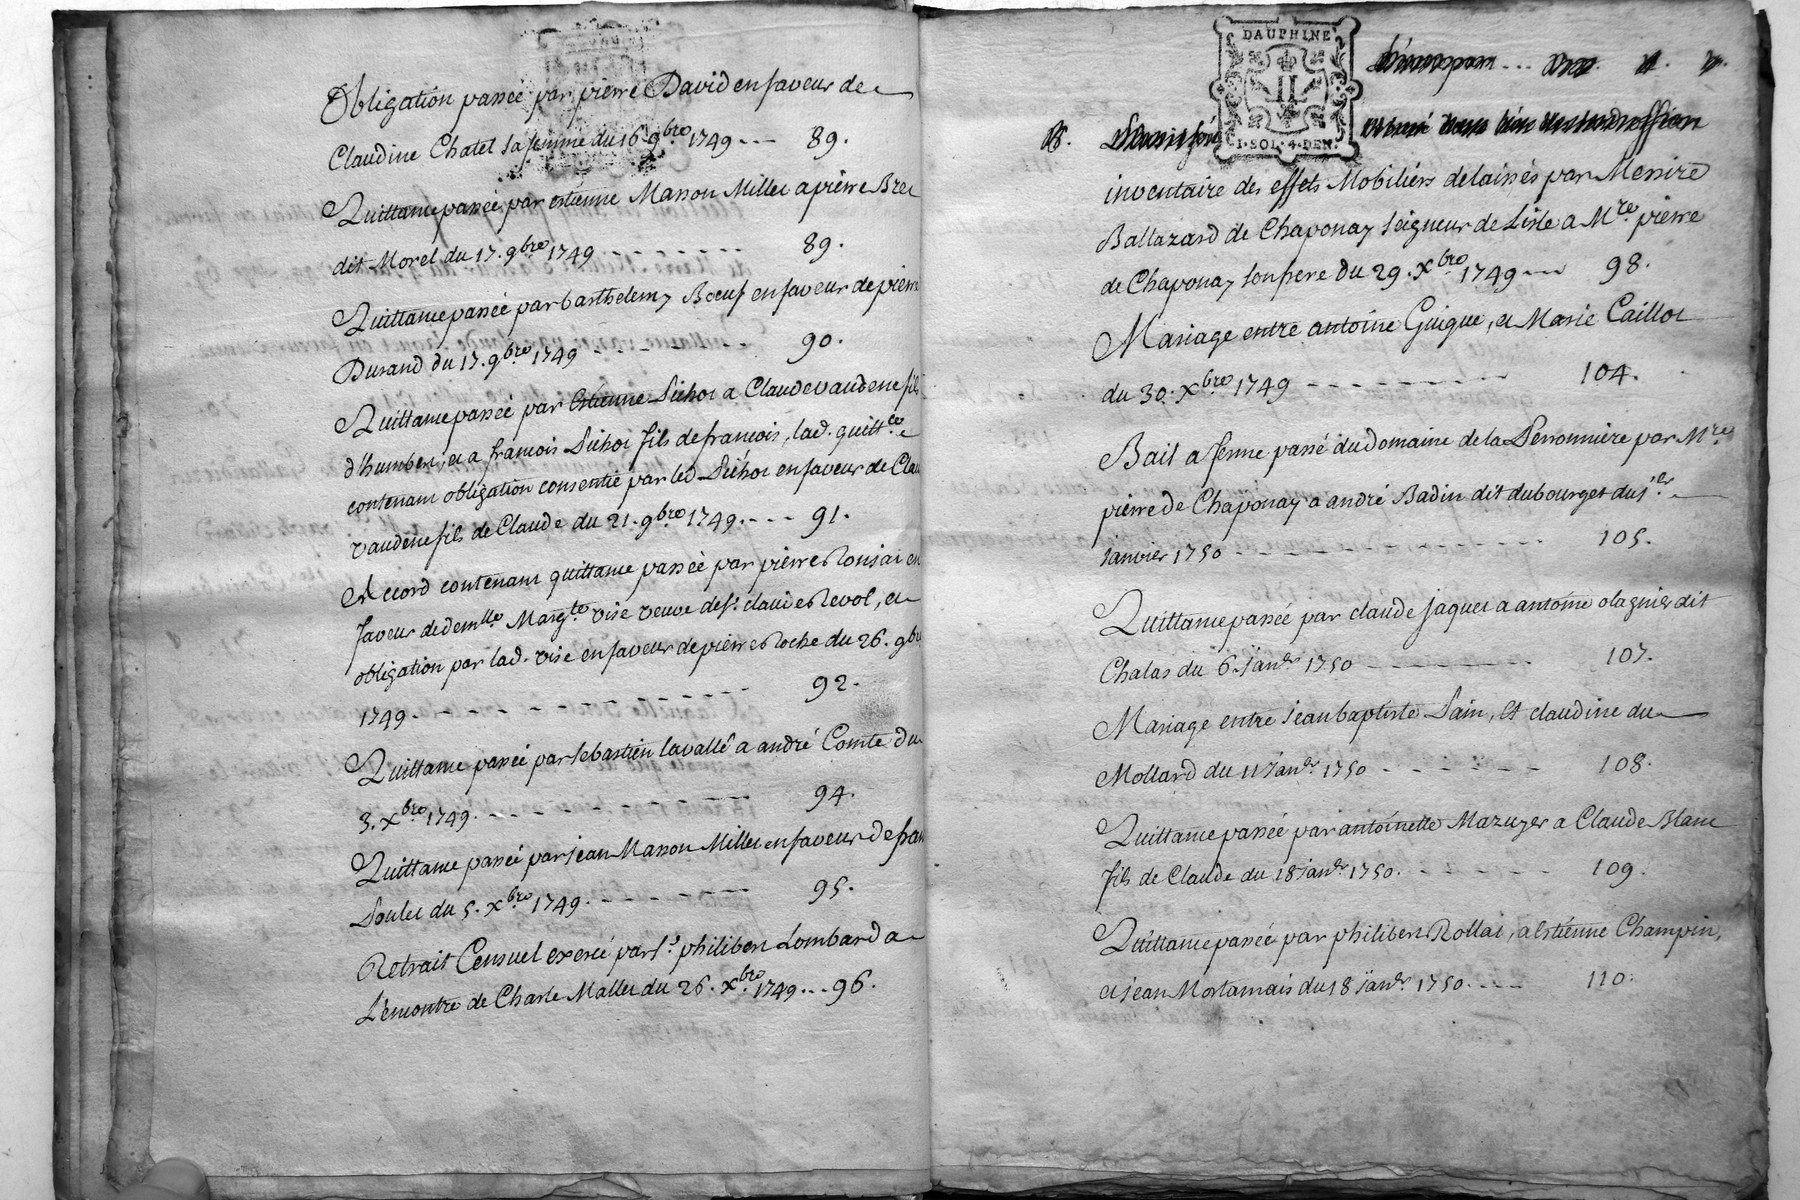 Obligation passée par pierre David en faveur de
Claudine Chatet sa femme du 16 9bre 1749 --- 89.
Quittance passée par estienne Masson Millet a pierre Bret
dit Morel du 17. 9bre 1749 - - - - - - 89.
Quittance passée par barthelemy Bœuf en faveur de pierre
Durand du 17. 9bre 1749 - - - - - - 90.
Quittance passée par Estienne Pichot a Claude vaudene fils
d'humbert, et a francois Pichot fils de francois, lad. quittce
contenant obligation consentie par led Pichot en faveur de Clau
vaudene fils de Claude du 21. 9bre 1749. --- 91.
Accord contenant quittance passée par pierre Ronjat en
faveur de demlle Margte vise veuve de sr. claude Revol, et
obligation par lad. vise en faveur de pierre Roche du 26. 9bre
1749. - - - - - - - - - 92.
Quittance passée par sebastien lavallé a andré Comte du
3. Xbre 1749. - - - - - - 94.
Quittance passée par jean Masson Millet en faveur de fran
Poulet du 5. Xbre 1749. - - - - - 95.
Retrait Censuel exercé par sr. philibert Lombard a
L'encontre de Charle Mallet du 26. Xbre 1749. -- 96.
DAUPHINE
II
1·SOL·4·DEN.
inventaire des effets Mobiliers delaissés par Messire
Baltazard de Chaponay seigneur de Lisle a Mre pierre
de Chaponay son frere du 29. Xbre 1749 --- 98.
Mariage entre antoine Guigue, et Marie Caillot
du 30. Xbre 1749 - - - - - - - 104.
Bail a ferme passé du domaine de la Peronniere par Mre
pierre de Chaponay a andré Badin dit dubourget du 1er
janvier 1750 - - - - - - - - - - 105.
Quittance passée par claude jaquet a antoine olagnier dit
Chalas du 6. janer 1750 - - - - - - 107.
Mariage entre jean baptiste Pain, et claudine du
Mollard du 11 janer 1750 - - - - - 108.
Quittance passée par antoinette Mazuyer a Claude Blanc
fils de Claude du 18 janer 1750. - - - - - 109.
Quittance passée par philibert Rollat, a Estienne Champin,
et jean Mortamais du 18 janer 1750. - - - 110.